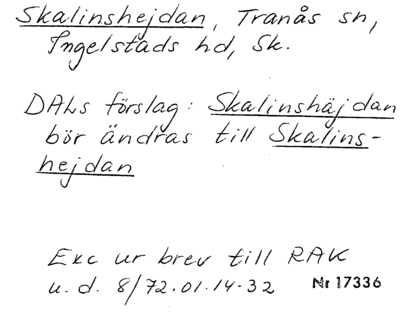 Skalinshejdan, Tranås sn,
Ingelstads hd, Sk.
DALs förslag: Skalinshäjdan
bör ändras till Skalins-
hejdan
Exc ur brev till RAK
u.d. 8/72.01.14-32 Nr 17336